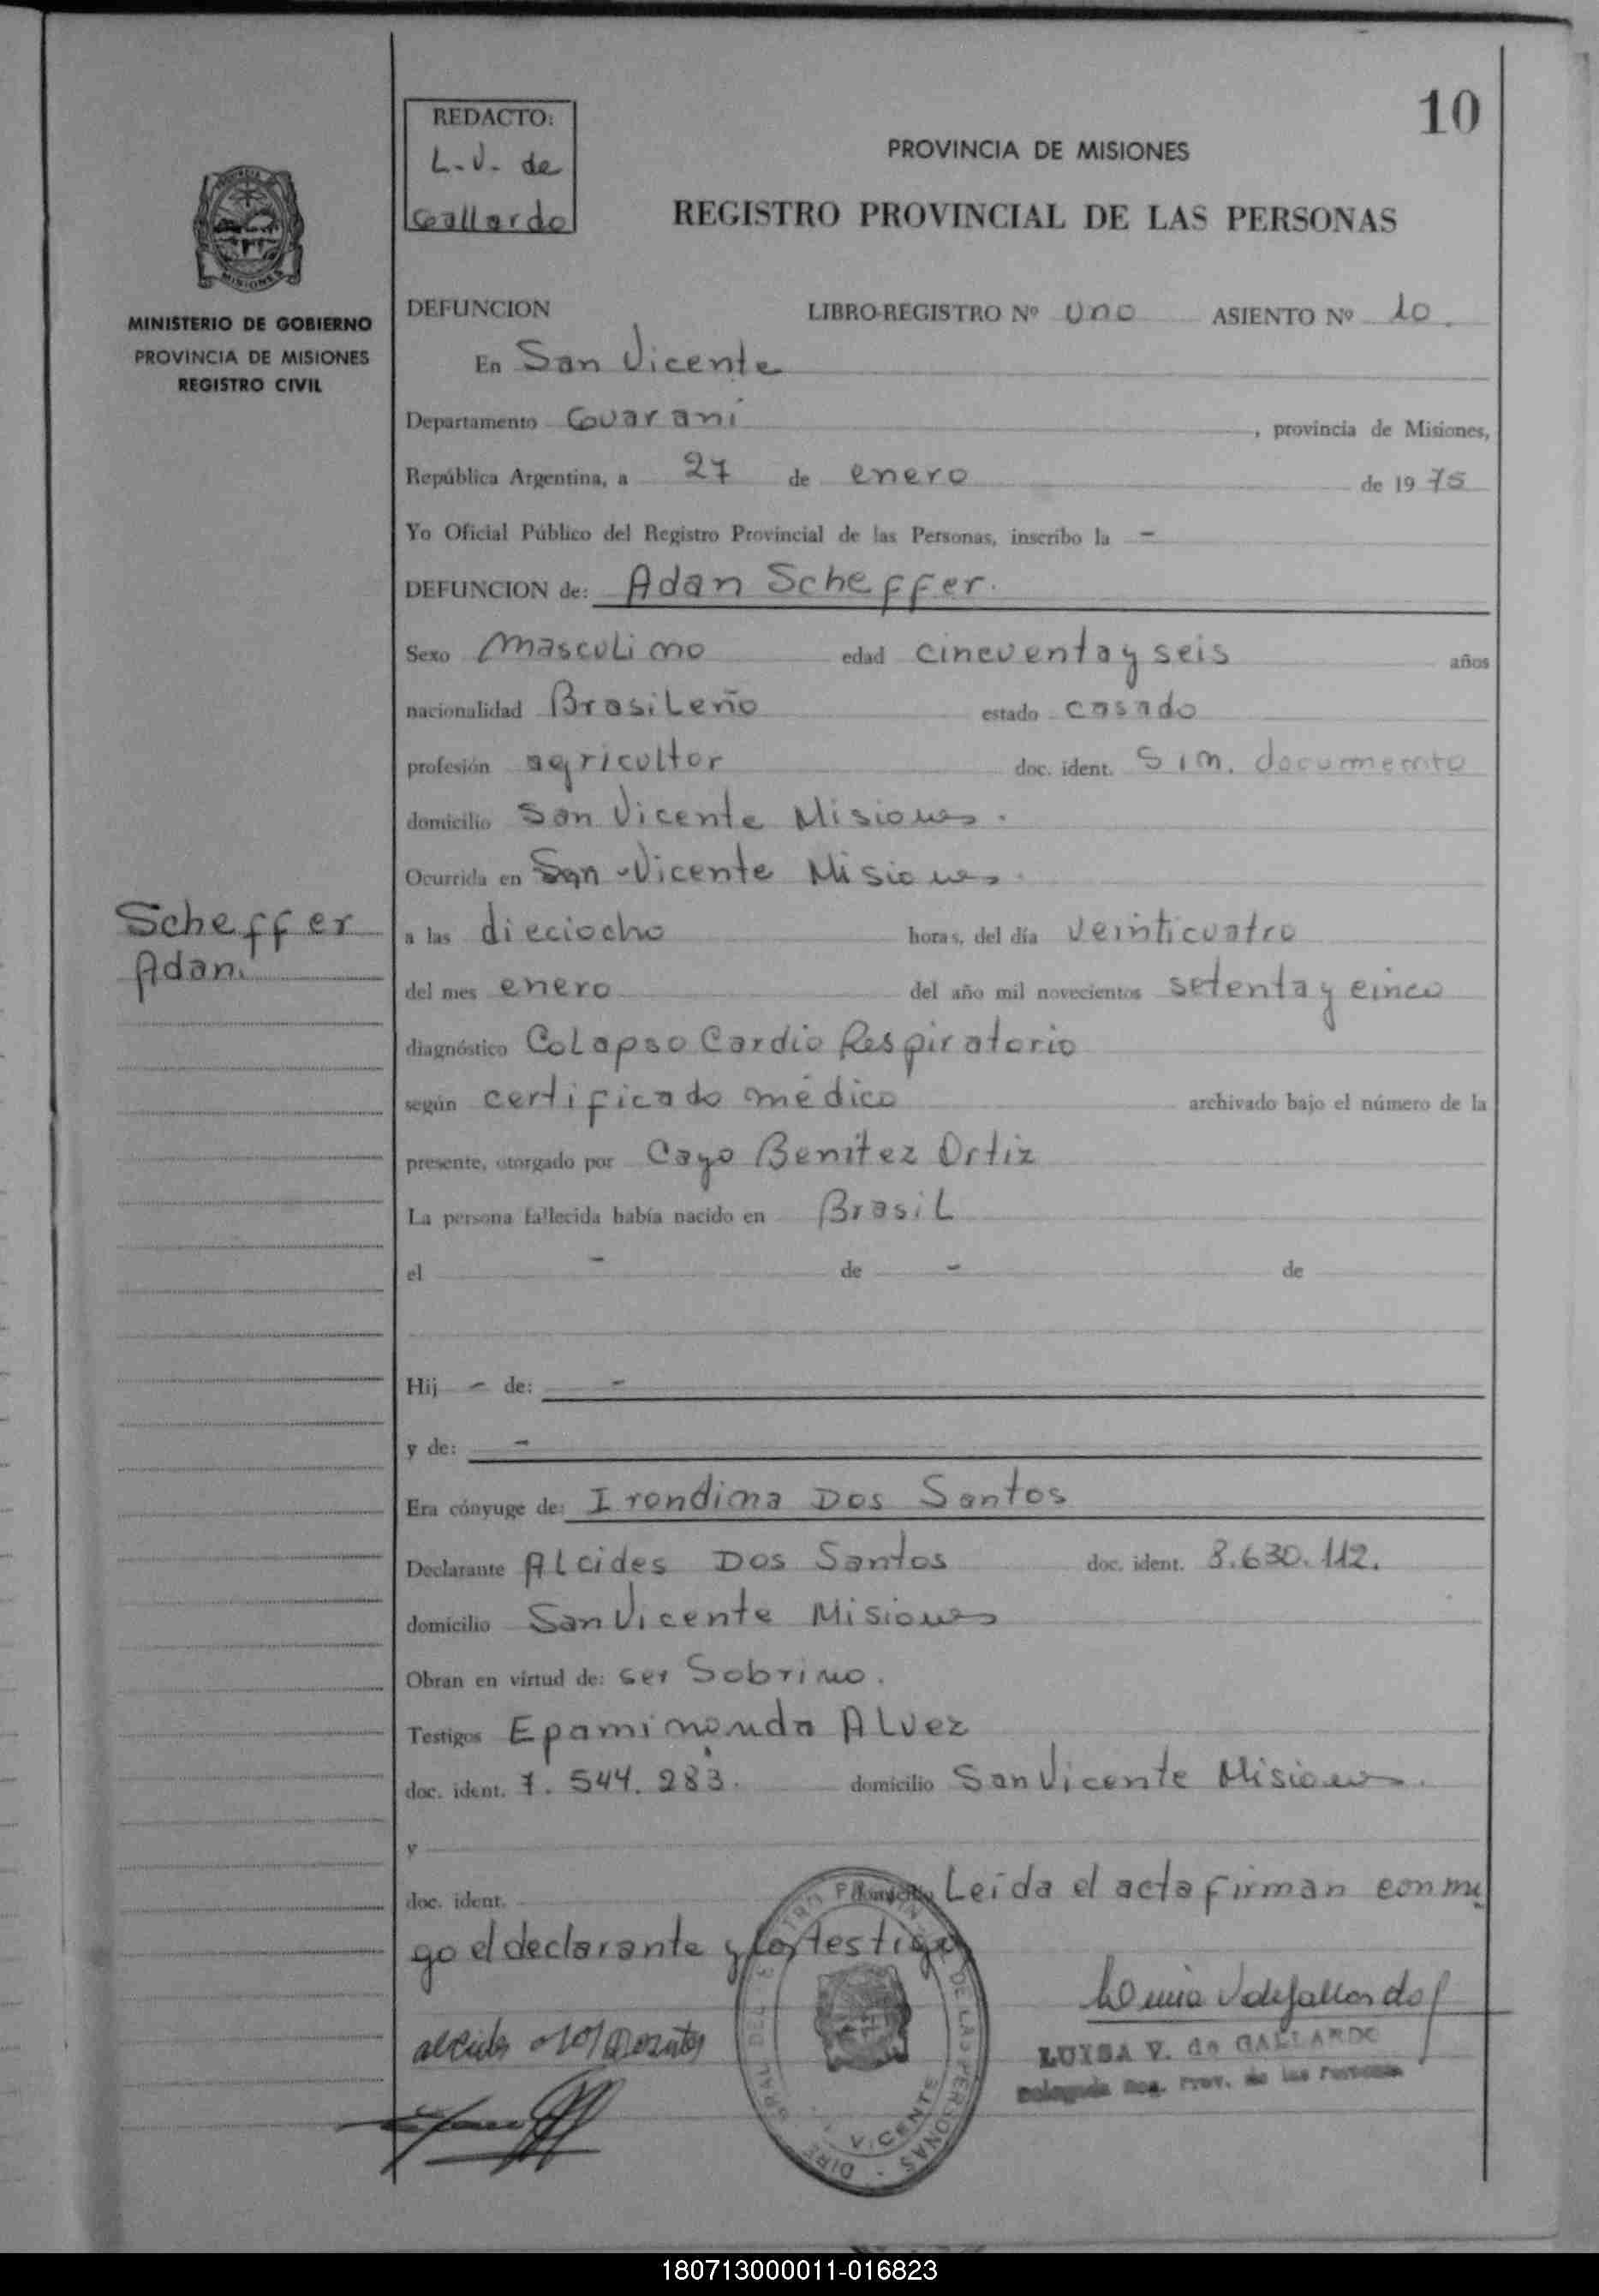 10
REDACTO:
L.V. de
Gallardo
PROVINCIA DE MISIONES
REGISTRO PROVINCIAL DE LAS PERSONAS
MINISTERIO DE GOBIERNO
PROVINCIA DE MISIONES
REGISTRO CIVIL
DEFUNCION LIBRO-REGISTRO Nº Uno ASIENTO Nº 10.
En San Vicente
Departamento Guarani, provincia de Misiones,
República Argentina, a 27 de enero de 1975
Yo Oficial Público del Registro Provincial de las Personas, inscribo la -
DEFUNCION de: Adan Scheffer.
Sexo Masculino edad cincuenta y seis años
nacionalidad Brasileño estado casado
profesión agricultor doc. ident. Sin. documento
domicilio San Vicente Misiones.
Ocurrida en San Vicente Misiones.
Scheffer
Adan.
a las dieciocho horas, del día veinticuatro
del mes enero del año mil novecientos setenta y cinco
diagnóstico Colapso Cardio Respiratorio
según certificado médico archivado bajo el número de la
presente, otorgado por Cayo Benitez Ortiz
La persona fallecida había nacido en Brasil
el - de - de
Hij - de: -
y de: -
Era cónyuge de: Irondina Dos Santos
Declarante Alcides Dos Santos doc. ident. 8.630.112.
domicilio San Vicente Misiones
Obran en virtud de: ser Sobrino.
Testigos Epaminonda Alvez
doc. ident. 7.544.283. domicilio San Vicente Misiones.
y
doc. ident. domicilio Leida el acta firman conmi
go el declarante y los testigo
LUISA V. de GALLARDO
Delegada Reg. Prov. de las Personas
VICENTE
180713000011-016823